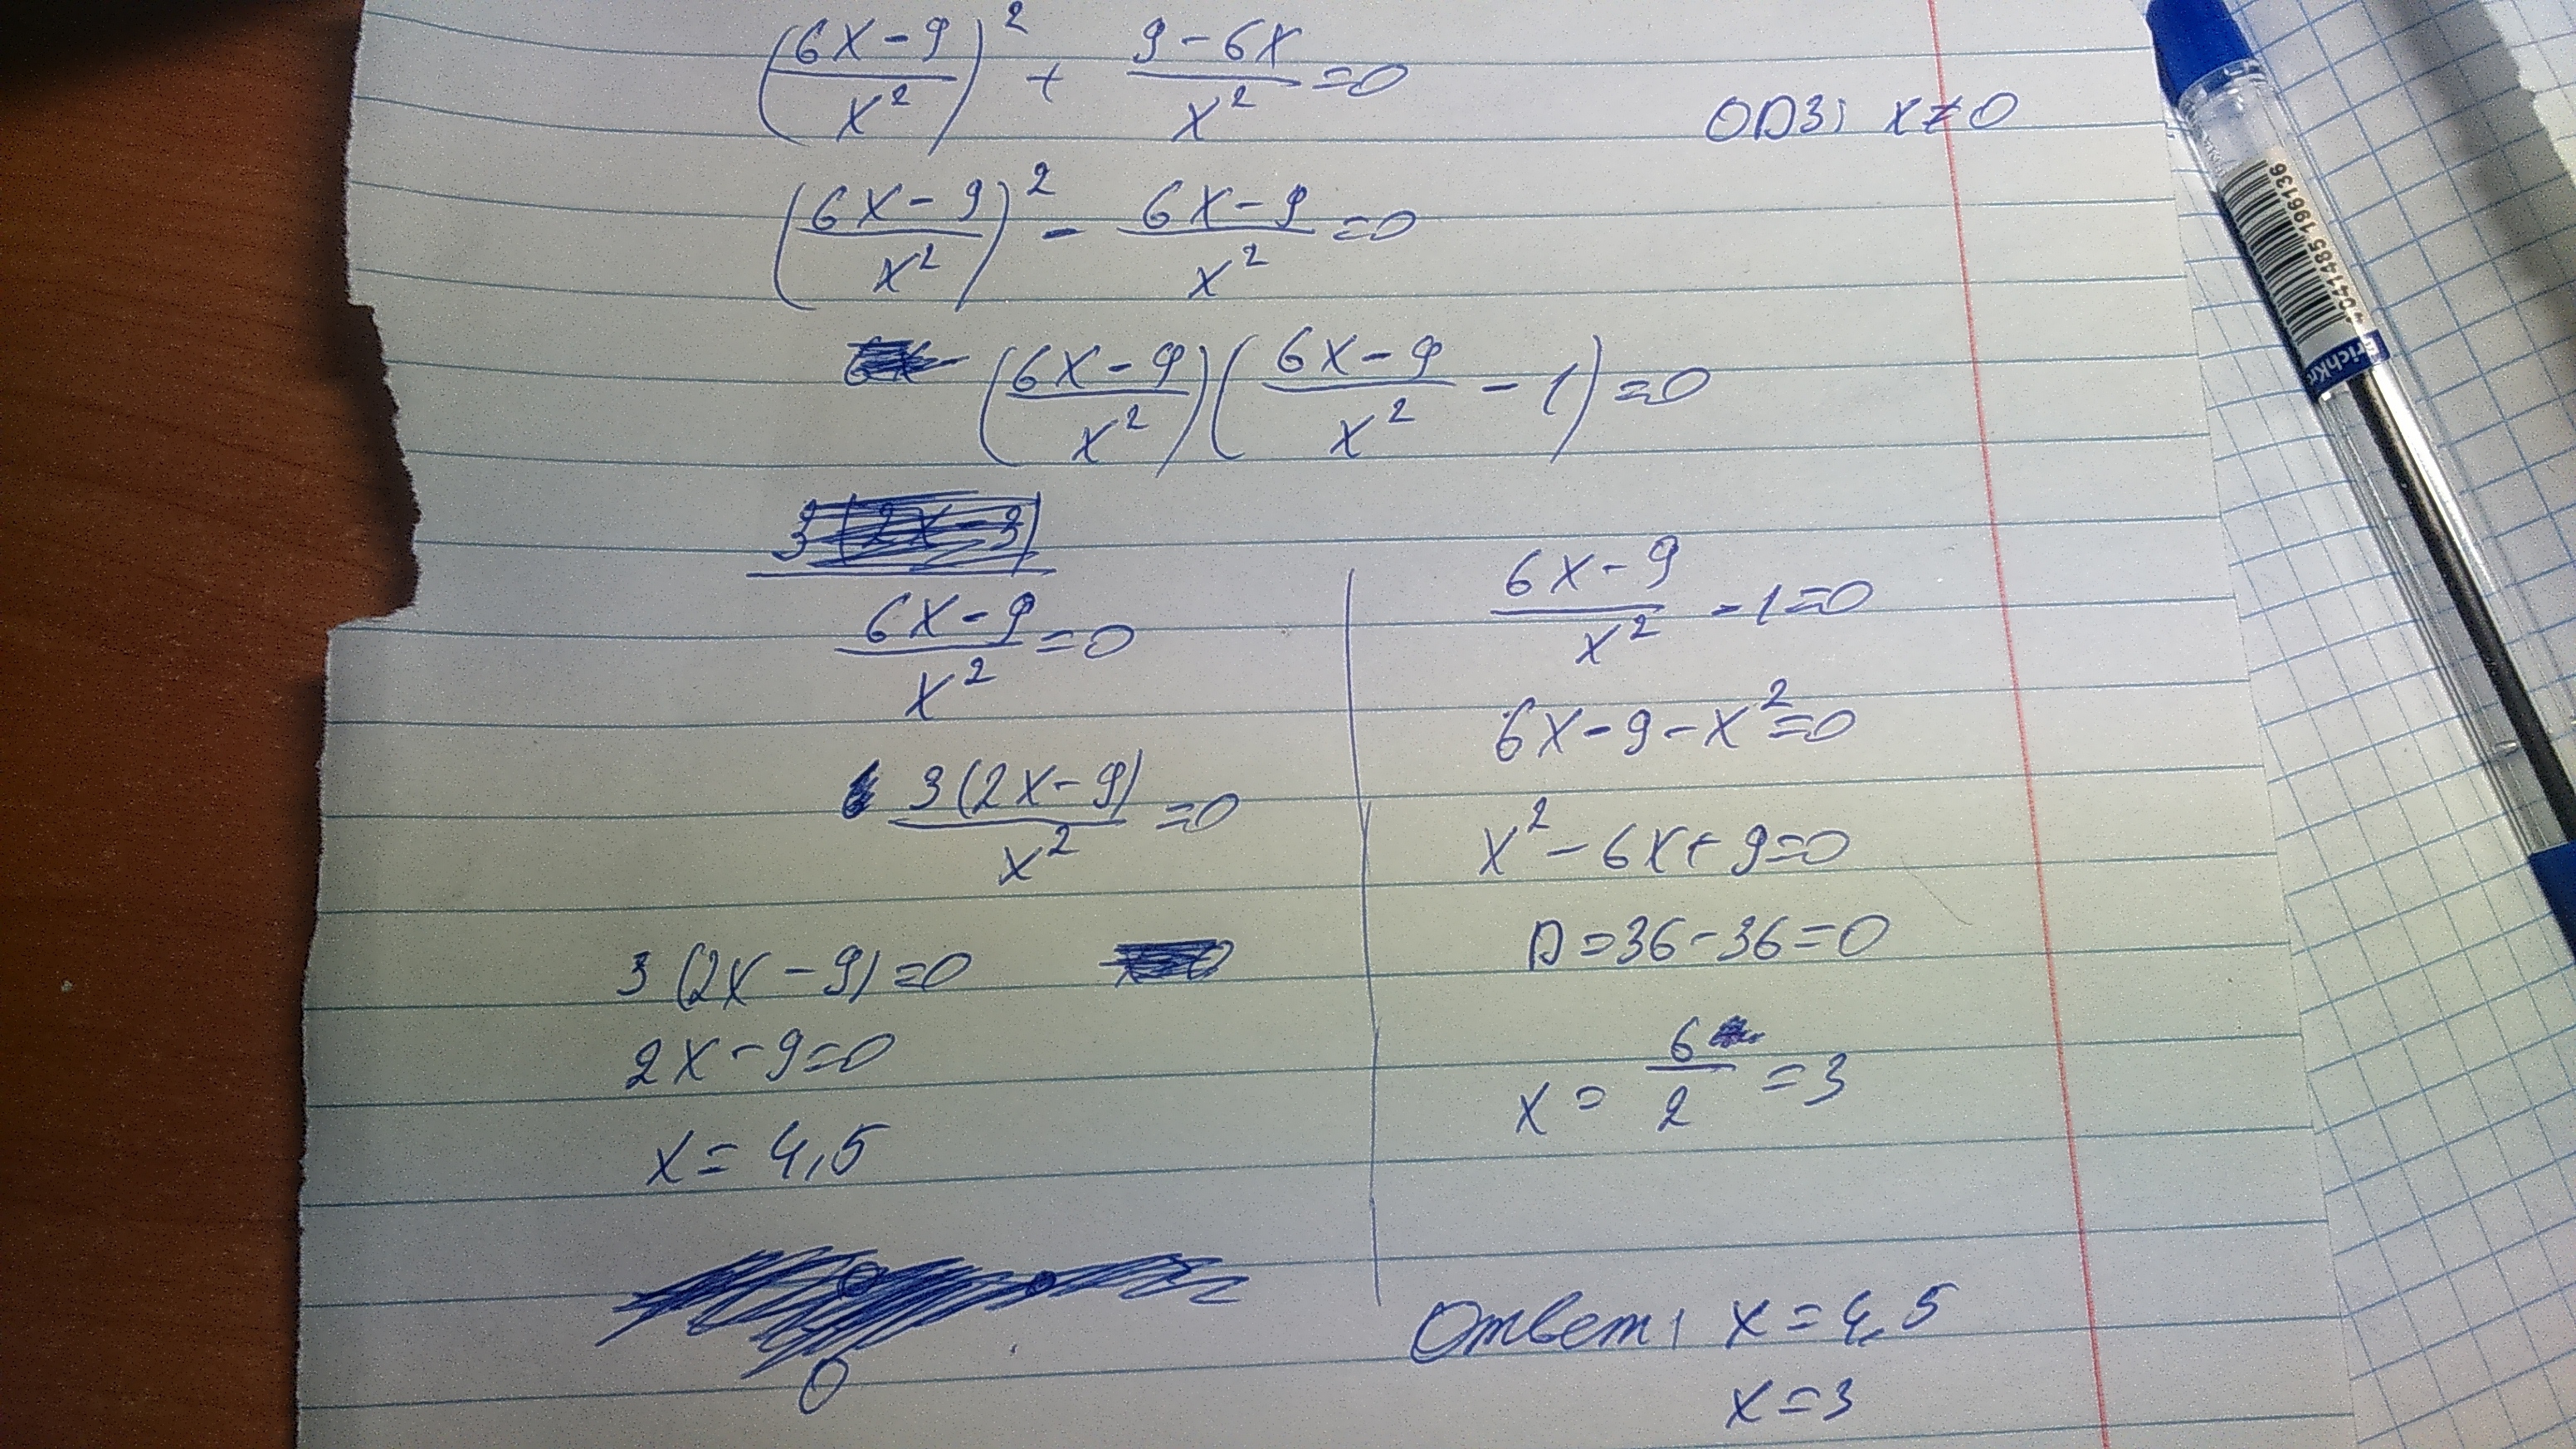 (6x-9/x²)² + 9-6x/x² =0
ОДЗ: x≠0
(6x-9/x²)² - 6x-9/x² =0
(6x-9/x²)(6x-9/x² - 1)=0
3(2x-3)
6x-9/x² =0
3(2x-9)/x² =0
3(2x-9)=0
2x-9=0
x=4,5
6x-9/x² -1=0
6x-9-x²=0
x²-6x+9=0
D=36-36=0
x= 6/2 =3
Ответ: x=4,5
x=3
4041485196136
ErichKr